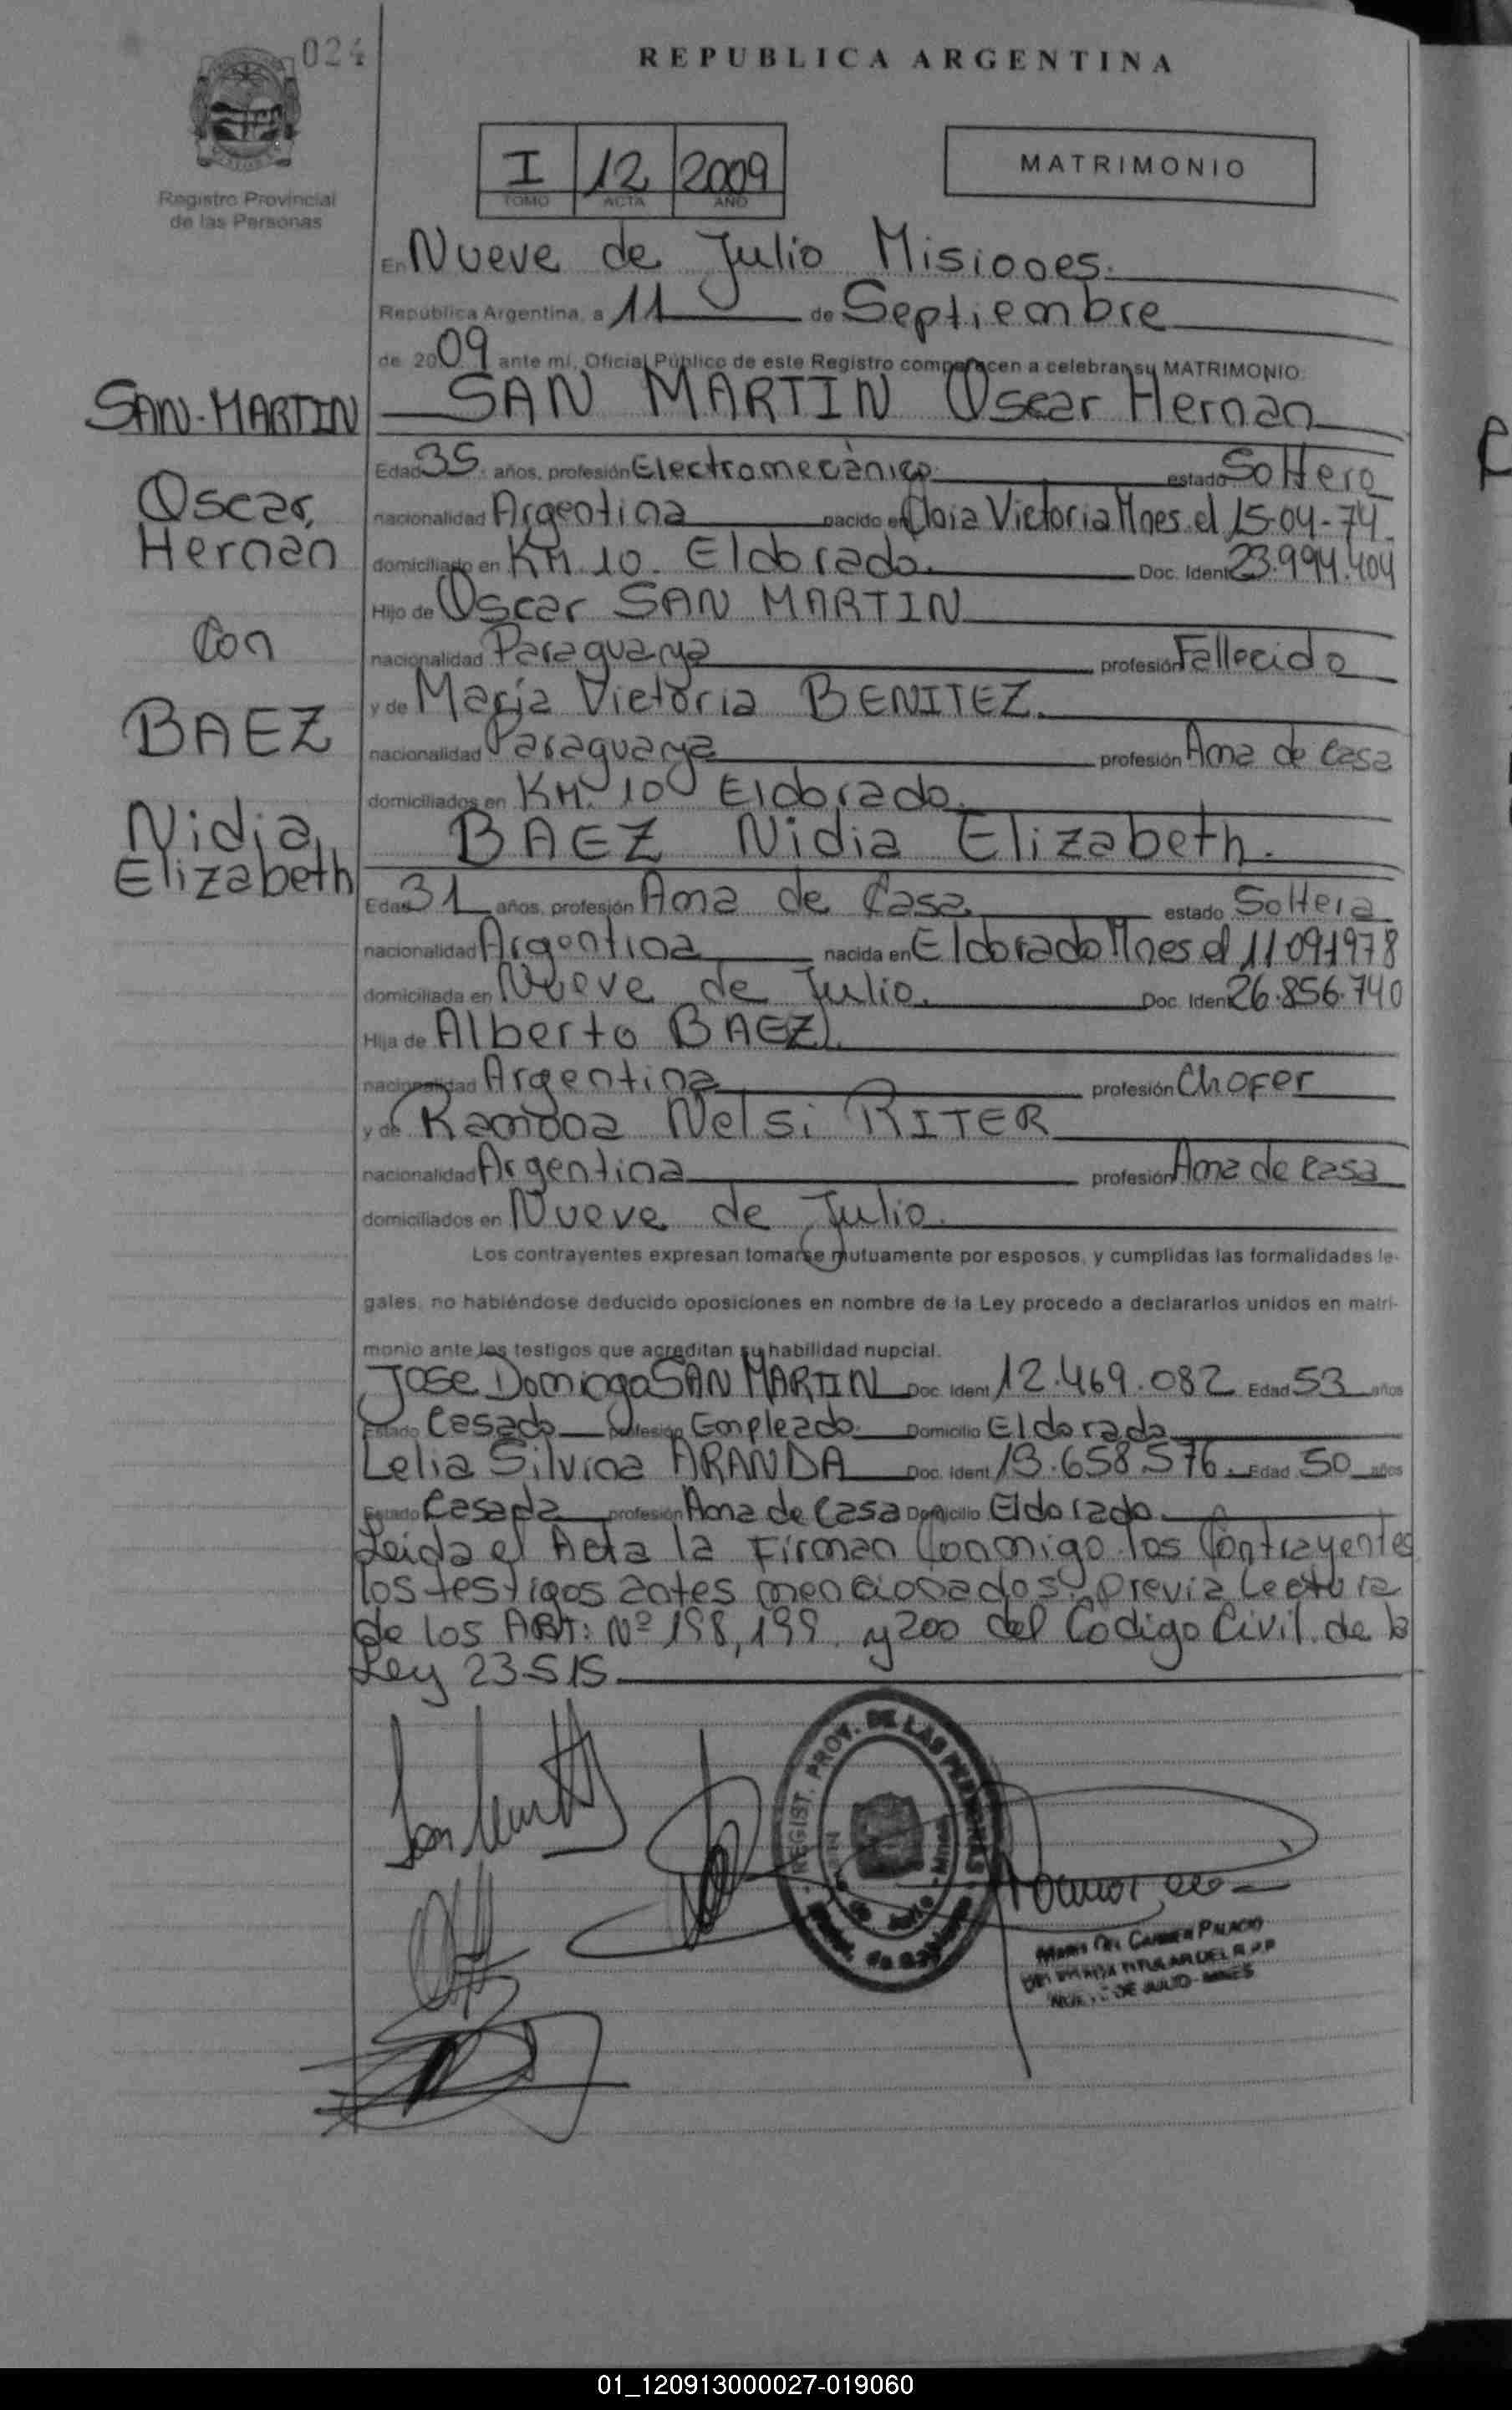 024
REPUBLICA ARGENTINA
Registro Provincial
de las Personas
I 12 2009
TOMO ACTA AÑO
MATRIMONIO
En Nueve de Julio Misiones.
República Argentina, a 11 de Septiembre
de 2009 ante mí, Oficial Público de este Registro comparecen a celebrar su MATRIMONIO:
SAN-MARTIN
Oscar,
Hernan
Con
BAEZ
Nidia,
Elizabeth
SAN MARTIN Oscar Hernan
Edad 35 años, profesión Electromecànico estado Soltero
nacionalidad Argentina nacido en Doña Victoria Mnes el 15-04-74
domiciliado en KM 10. Eldorado. Doc. Ident 23.994.404
Hijo de Oscar SAN MARTIN
nacionalidad Paraguaya profesión Fallecido
y de María Victoria BENITEZ.
nacionalidad Paraguaya profesión Ama de Casa
domiciliados en KM. 10 Eldorado.
BAEZ Nidia Elizabeth.
Edad 31 años, profesión Ama de Casa estado Soltera
nacionalidad Argentina nacida en Eldorado Mnes el 11091978
domiciliada en Nueve de Julio. Doc. Ident 26.856.740
Hija de Alberto BAEZ.
nacionalidad Argentina profesión Chofer
y de Ramona Nelsi RITER
nacionalidad Argentina profesión Ama de Casa
domiciliados en Nueve de Julio.
Los contrayentes expresan tomarse mutuamente por esposos, y cumplidas las formalidades le-
gales, no habiéndose deducido oposiciones en nombre de la Ley procedo a declararlos unidos en matri-
monio ante los testigos que acreditan su habilidad nupcial.
Jose Domingo SAN MARTIN Doc. Ident 12.469.082 Edad 53 años
Estado Casado profesión Empleado Domicilio Eldorado
Lelia Silvina ARANDA Doc. Ident 13.658.576. Edad 50 años
Estado Casada profesión Ama de Casa Domicilio Eldorado
Leida el Acta la Firman Conmigo los Contrayentes
los testigos antes mencionados. previa lectura
de los ART: Nº 198, 199, y 200 del Codigo Civil de la
Ley 23515.
REGIST. PROV. DE LAS PERSONAS
MARIA DEL CARMEN PALACIO
TITULAR DEL R.P.P
NUEVE DE JULIO - MNES
01_120913000027-019060